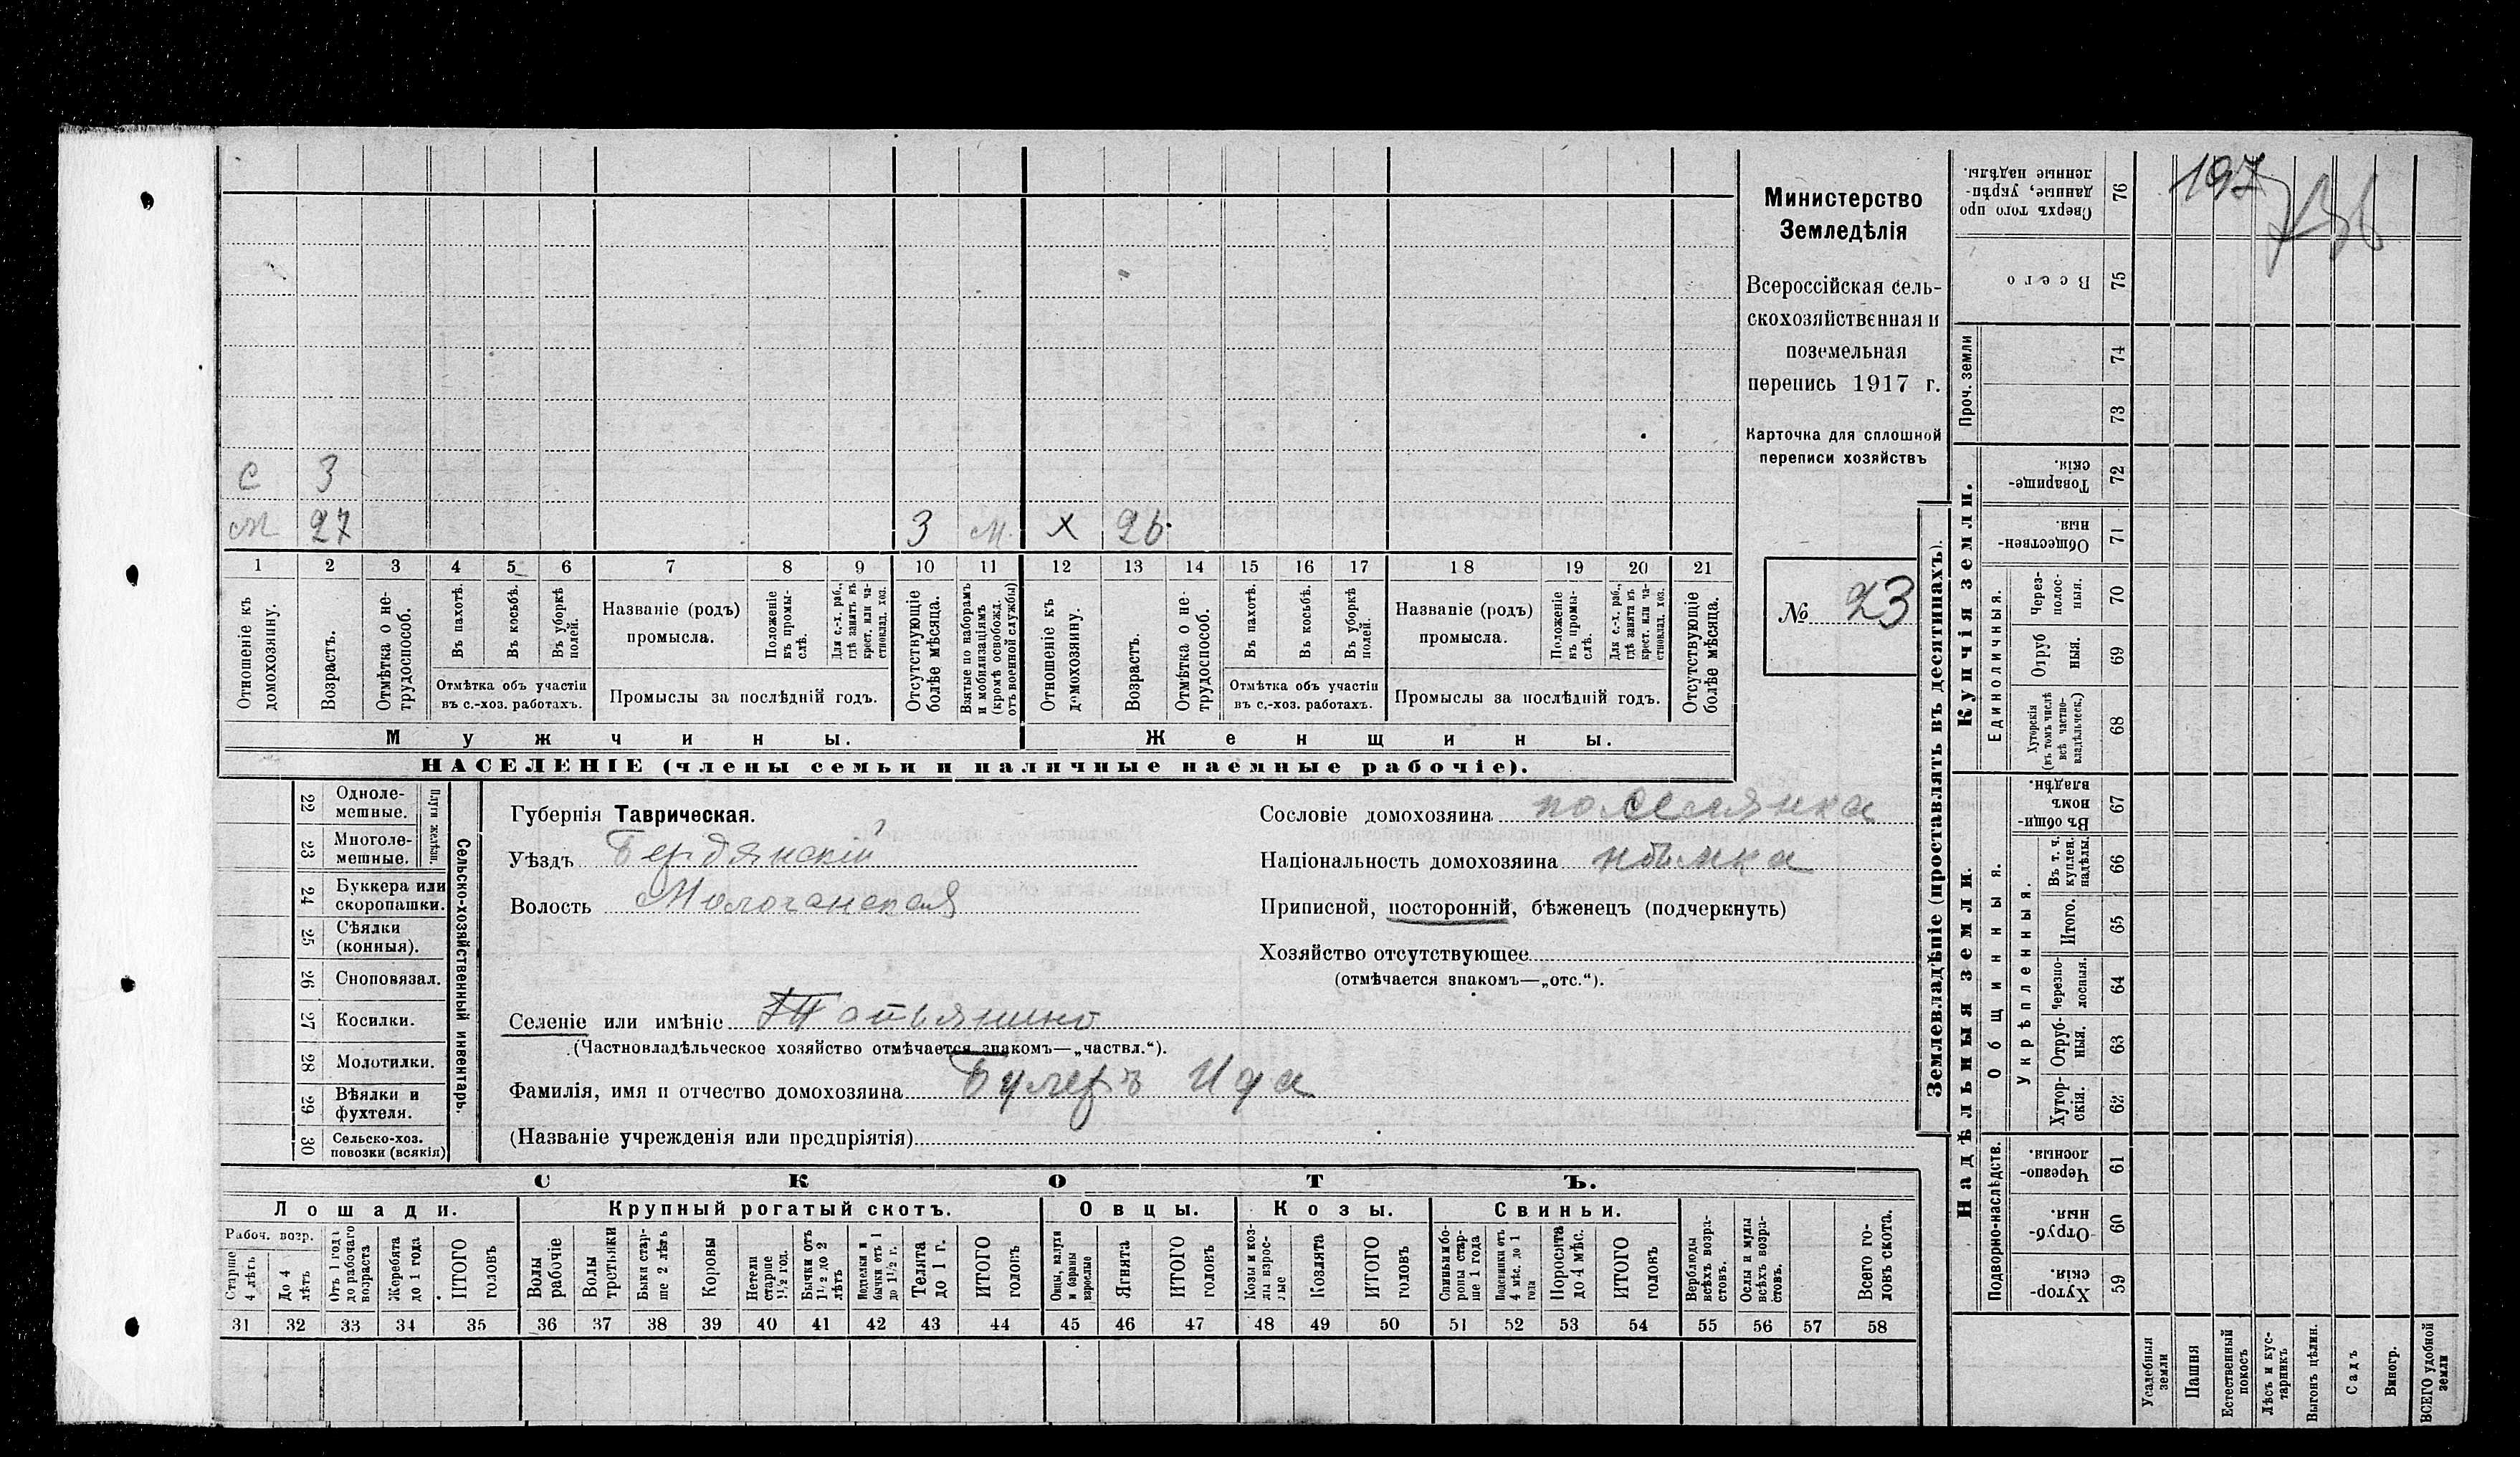 197
Министерство
Земледѣлія
Всероссійская сель-
скохозяйственная и
поземельная
перепись 1917 г.
Карточка для сплошной
переписи хозяйствъ
№ 23
с 3
м 27 3 м. х 26.
1 2 3 4 5 6 7 8 9 10 11 12 13 14 15 16 17 18 19 20 21
Отношеніе къ домохозяину.
Возрастъ.
Отмѣтка о не-трудоспособ.
Въ пахотѣ.
Въ косьбѣ.
Въ уборкѣ полей.
Отмѣтка объ участіи
въ с.-хоз. работахъ.
Названіе (родъ)
промысла.
Положеніе въ промы-слѣ.
Для с.-х. раб., гдѣ занятъ въ крест. или ча-стновлад. хоз.
Промыслы за послѣдній годъ.
Отсутствующіе болѣе мѣсяца.
Взятые по наборамъ и мобилизаціямъ (кромѣ освобожд. отъ военной службы)
Отношеніе къ домохозяину.
Возрастъ.
Отмѣтка о не-трудоспособ.
Въ пахотѣ.
Въ косьбѣ.
Въ уборкѣ полей.
Отмѣтка объ участіи
въ с.-хоз. работахъ.
Названіе (родъ)
промысла.
Положеніе въ промы-слѣ.
Для с.-х. раб., гдѣ занята въ крест. или ча-стновлад. хоз.
Промыслы за послѣдній годъ.
Отсутствующіе болѣе мѣсяца.
Мужчины. Женщины.
НАСЕЛЕНІЕ (члены семьи и наличные наемные рабочіе).
Сельско-хозяйственный инвентарь.
Плуги желѣзн.
22 Однолемешные.
23 Многолемешные.
24 Буккера или скоропашки.
25 Сѣялки (конныя).
26 Сноповязал.
27 Косилки.
28 Молотилки.
29 Вѣялки и фухтеля.
30 Сельско-хоз. повозки (всякія)
Губернія Таврическая.
Уѣздъ Бердянскій
Волость Молочанская
Сословіе домохозяина поселянка
Національность домохозяина нѣмка
Приписной, посторонній, бѣженецъ (подчеркнуть)
Хозяйство отсутствующее
(отмѣчается знакомъ—„отс.“).
Селеніе или имѣніе Татьянино
(Частновладѣльческое хозяйство отмѣчается знакомъ—„частвл.“).
Фамилія, имя и отчество домохозяина Булеръ Ида
(Названіе учрежденія или предпріятія)
СКОТЪ.
Лошади. Крупный рогатый скотъ. Овцы. Козы. Свиньи.
Рабоч. возр.
Старше 4 лѣтъ
До 4 лѣтъ
Отъ 1 года до рабочаго возраста
Жеребята до 1 года
ИТОГО головъ
Волы рабочіе
Волы третьяки
Быки стар-ше 2 лѣтъ
Коровы
Нетели старше 1½ год.
Бычки отъ 1½ до 2 лѣтъ
Нетелки и бычки отъ 1 до 1½ г.
Телята до 1 г.
ИТОГО головъ
Овцы, валухи и бараны взрослые
Ягнята
ИТОГО головъ
Козы и коз-лы взрос-лые
Козлята
ИТОГО головъ
Свиньи и бо-ровы стар-ше 1 года
Подсвинки отъ 4 мѣс. до 1 года
Поросята до 4 мѣс.
ИТОГО головъ
Верблюды всѣхъ возра-стовъ.
Ослы и мулы всѣхъ возра-стовъ.
Всего го-ловъ скота.
31 32 33 34 35 36 37 38 39 40 41 42 43 44 45 46 47 48 49 50 51 52 53 54 55 56 57 58
Землевладѣніе (проставлять въ десятинахъ).
Сверхъ того про данные, укрѣп-ленные надѣлы. 76
Всего 75
Проч. земли
74
73
Купчія земли.
Товарище-скія. 72
Обществен-ныя. 71
Единоличныя.
Через-полос-ныя. 70
Отруб ныя. 69
Хуторскія (въ томъ числѣ всѣ частно-владѣльческ.) 68
Надѣльныя земли.
Общинныя.
Въ общи-номъ владѣн. 67
Укрѣпленныя.
Въ т. ч. куплен. надѣлы. 66
Итого. 65
Черезпо-лосныя. 64
Отруб-ныя. 63
Хутор-скія. 62
Подворно-наслѣдств.
Черезпо-лосныя. 61
Отруб-ныя. 60
Хутор-скія. 59
Усадебныя земли
Пашня
Естественный покосъ
Лѣсъ и кус-тарникъ
Выгонъ цѣлин.
Садъ
Виногр.
ВСЕГО удобной земли